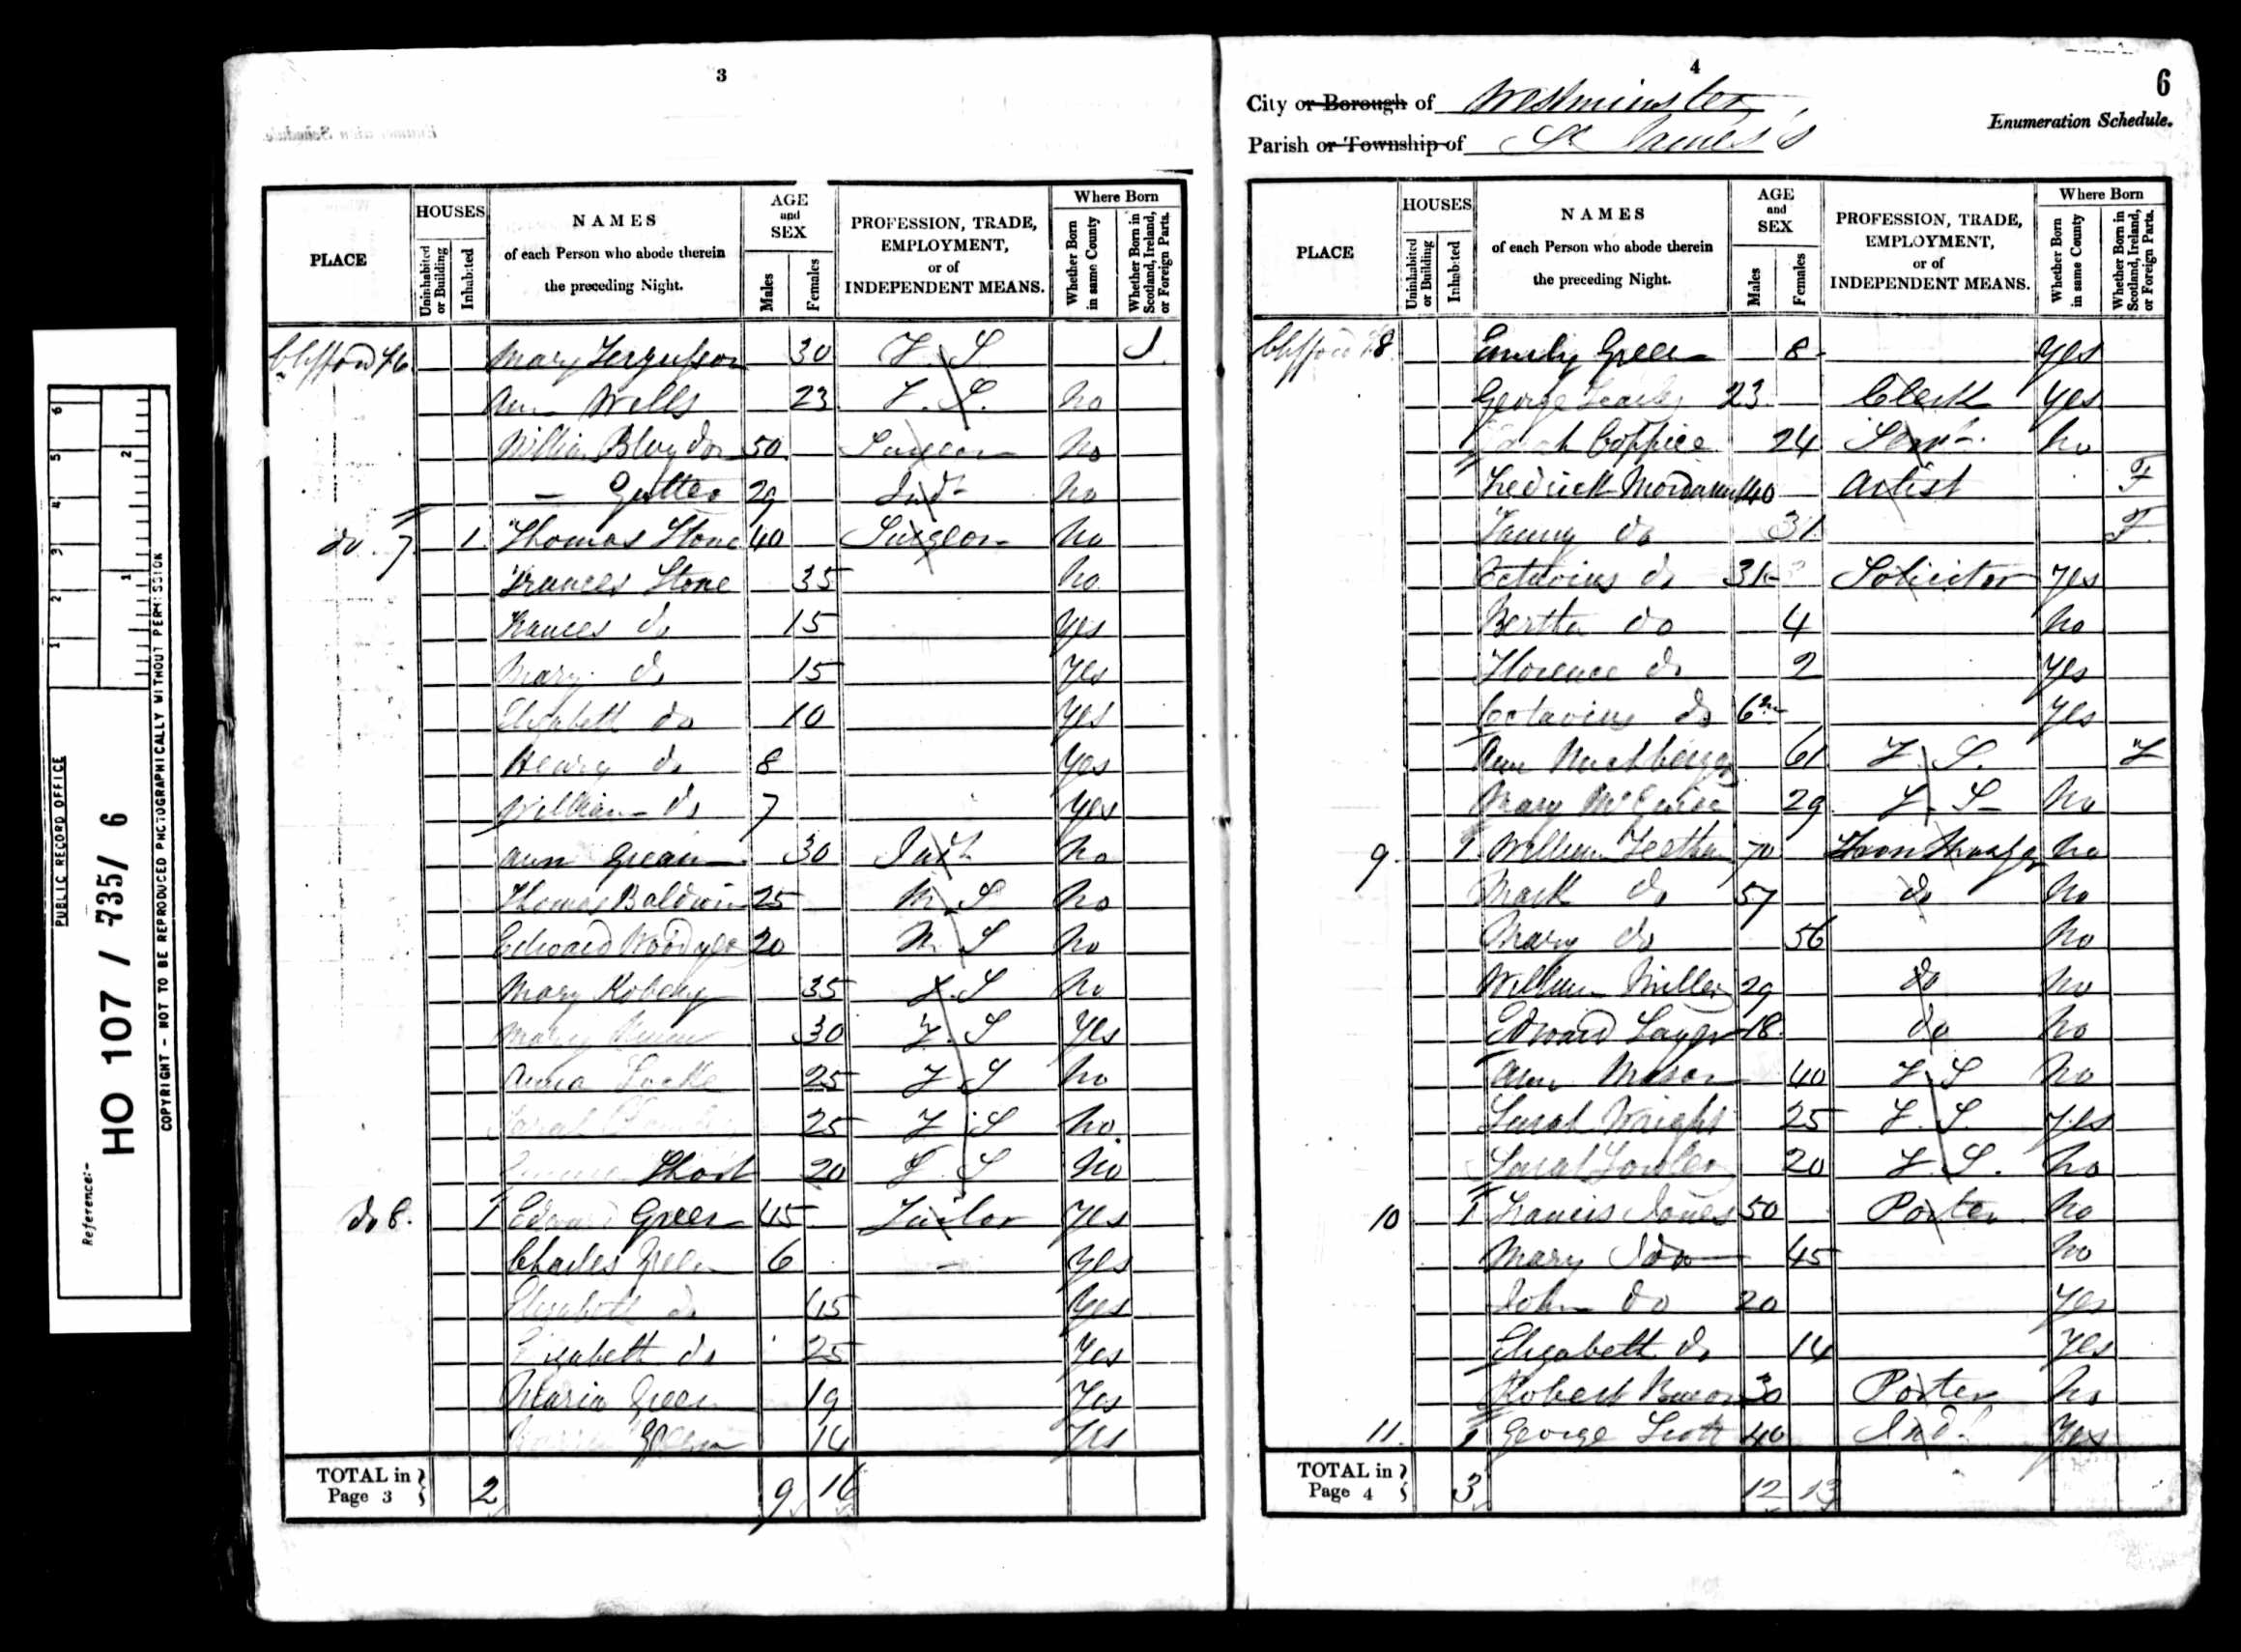 PUBLIC RECORD OFFICE
Reference:-
HO 107 / 735 / 6
COPYRIGHT - NOT TO BE REPRODUCED PHOTOGRAPHICALLY WITHOUT PERMISSION
1 2 3 4 5 6
1 2
3
PLACE
HOUSES
Uninhabited or Building
Inhabited
NAMES
of each Person who abode therein
the preceding Night.
AGE and SEX
Males
Females
PROFESSION, TRADE, EMPLOYMENT, or of INDEPENDENT MEANS.
Where Born
Whether Born in same County
Whether Born in Scotland, Ireland, or Foreign Parts.
Clifford St 6 Mary Fergusson 30 F. S.
Ann Wells 23 F. S. No
William 50 Surgeon No
— 29 Ind No
do 7 1 Thomas Stone 40 Surgeon No
Frances Stone 35 No
Frances do 15 Yes
Mary do 15 Yes
Elizabeth do 10 Yes
Henry do 8 Yes
William do 7 Yes
Ann 30 Ind No
Thomas Baldwin 25 M. S No
Edward 20 M. S No
Mary 35 F. S No
Mary 30 F. S Yes
25 F. S No
Sarah 25 F. S No.
Short 20 F. S No
do 8. 1 Edward Green 45 Tailor Yes
Charles Green 6 — Yes
Elizabeth do 45 Yes
Elizabeth do 25 Yes
Maria Green 19 Yes
Green 14 Yes
TOTAL in Page 3 2 9 16
4
6
City or Borough of Westminster
Enumeration Schedule.
Parish or Township of St James's
PLACE
HOUSES
Uninhabited or Building
Inhabited
NAMES
of each Person who abode therein
the preceding Night.
AGE and SEX
Males
Females
PROFESSION, TRADE, EMPLOYMENT, or of INDEPENDENT MEANS.
Where Born
Whether Born in same County
Whether Born in Scotland, Ireland, or Foreign Parts.
Clifford St 8 Emily Green 8 Yes
George 23 Clerk Yes
Coppice 24 Serv. No
40 Artist F
Fanny do 31 F.
Octavius do 31 Solicitor Yes
Bertha do 4 No
Florence do 2 Yes
Octavius do 6m Yes
Ann 61 F. S. F
Mary 29 F. S No
9 1 William 70 No
Mark do 57 do No
Mary do 56 No
William Miller 29 do No
Edward 18 do No
Ann Mason 40 F. S No
Sarah Wright 25 F. S. Yes
Sarah Fowler 20 F. S. No
10 1 Francis Jones 50 Porter No
Mary do 45 No
John do 20 Yes
Elizabeth do 14 Yes
Robert 30 Porter No
11. 1 George Scott 40 Ind. Yes
TOTAL in Page 4 3 12 13